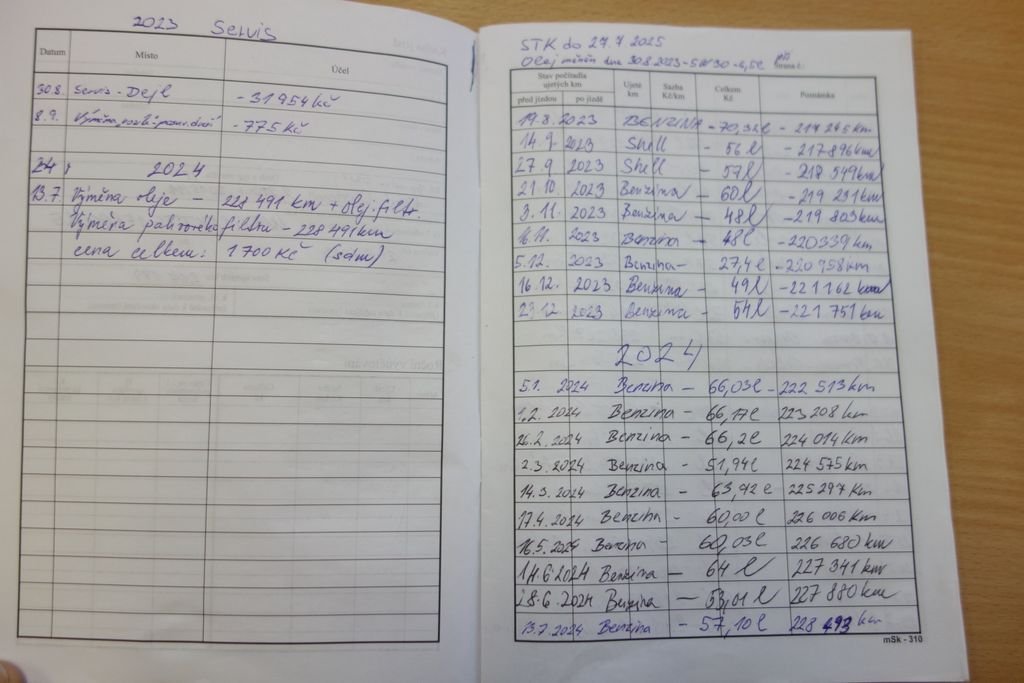 2023 Servis
Datum Místo Účel
30.8. Servis - Dejl - 31 954 Kč
8.9. Výměna - 775 Kč
2024
13.7 Výměna oleje - 228 491 km + olej. filtr.
Výměna palivového filtru - 228 491 km
cena celkem: 1700 Kč (sám)
STK do 27.7.2025
Olej měněn dne 30.8.2023 - 5W30 - 6,5l
Strana č.:
Stav počítadla ujetých km Ujeté km Sazba Kč/km Celkem Kč Poznámka
před jízdou po jízdě
19.8.2023 BENZINA - 70,32l - 217 245 km
14.9. 2023 Shell - 56 l - 217 896 km
27.9 2023 Shell - 57l - 218 549 km
21.10. 2023 Benzina - 60l - 219 231 km
3.11. 2023 Benzina - 48l - 219 803 km
16.11. 2023 Benzina - 48l - 220 339 km
5.12. 2023 Benzina - 27,4l - 220 958 km
16.12. 2023 Benzina - 49l - 221 162 km
29.12 2023 Benzina - 54l - 221 751 km
2024
5.1. 2024 Benzina - 66,03l - 222 513 km
1.2. 2024 Benzina - 66,17l 223 208 km
26.2. 2024 Benzina - 66,2l 224 014 km
2.3. 2024 Benzina - 51,94l 224 575 km
14.3. 2024 Benzina - 63,92 l 225 297 km
17.4. 2024 Benzina - 60,00 l 226 006 km
16.5. 2024 Benzina - 60,03l 226 680 km
14.6.2024 Benzina - 64 l 227 341 km
28.6.2024 Benzina - 53,01 l 227 880 km
13.7.2024 Benzina - 57,10l 228 493 km
mSk - 310